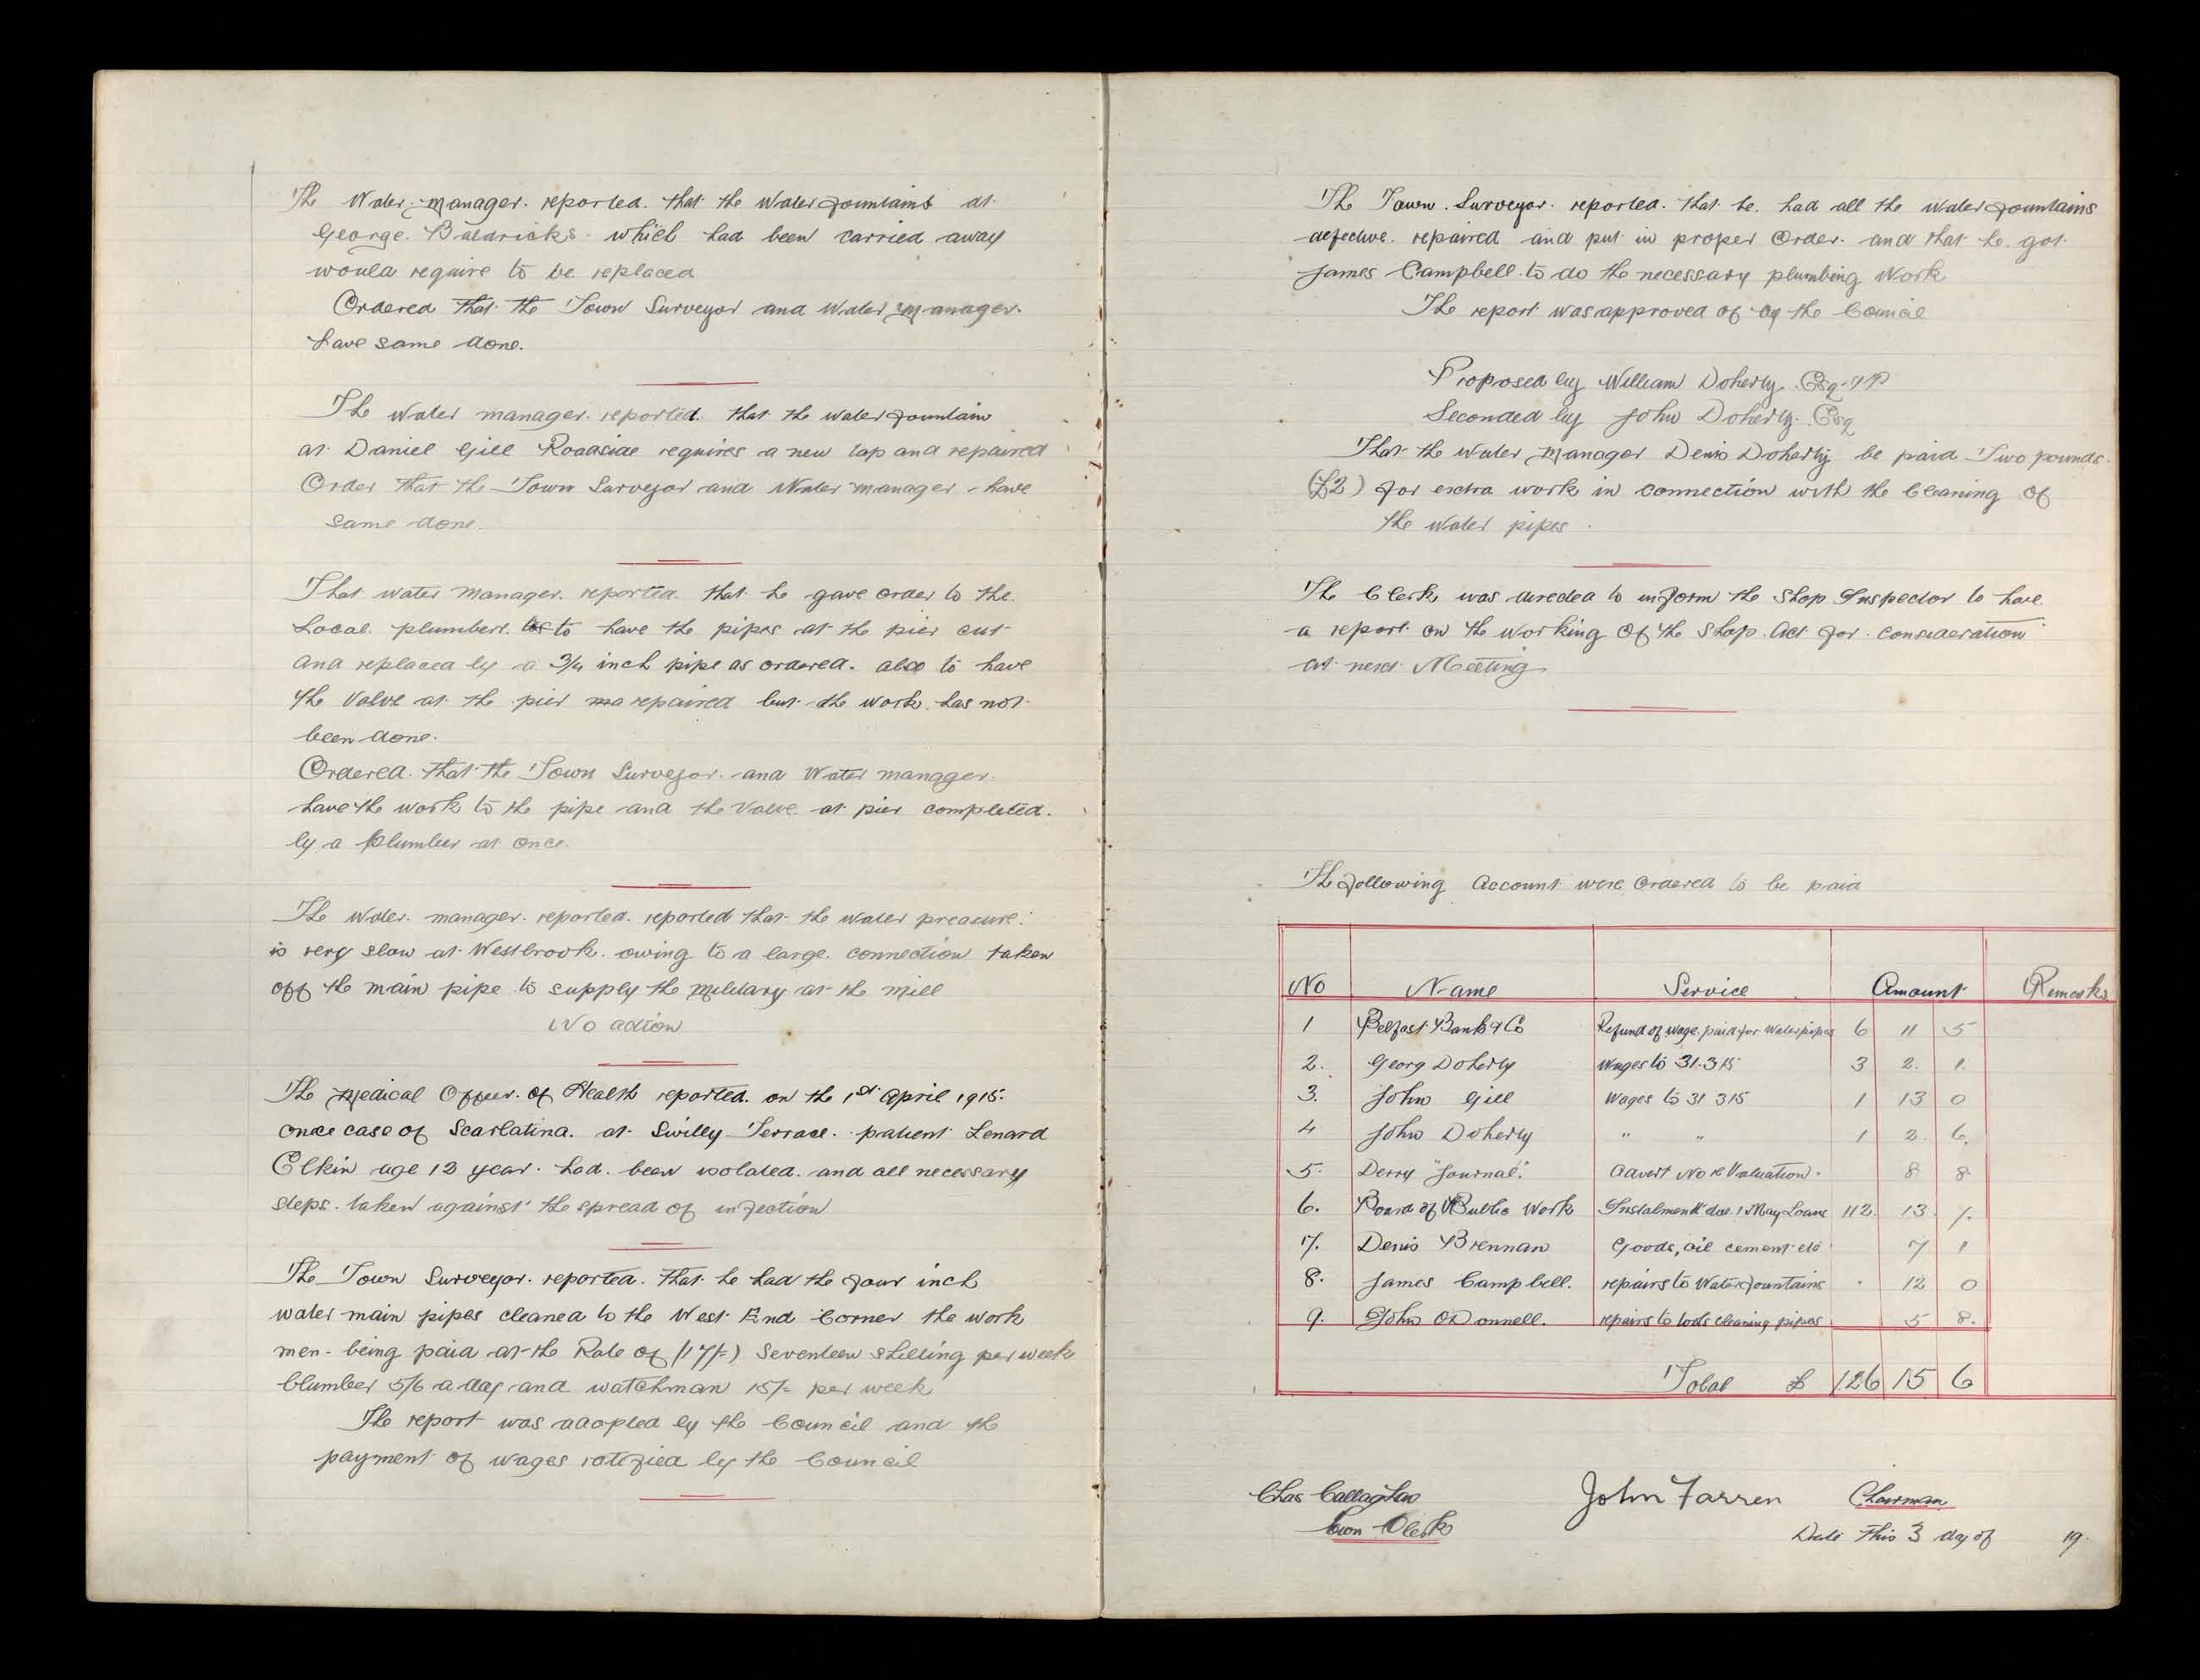 The Water manager reported that the Water fountains at
George Baldricks which had been carried away
would require to be replaced
Ordered that the Town Surveyor and Water Manager
have same done.
The Water manager reported that the water fountain
at Daniel Gill Roadside requires a new tap and repaired
Order that the Town Surveyor and Water manager - have
same done.
That water manager reported that he gave order to the
Local plumbers to have the pipes at the pier cut
and replaced by a 3/4 inch pipe as ordered. also to have
the Valve at the pier repaired but the work has not
been done.
Ordered that the Town Surveyor and Water manager
have the work to the pipe and the Valve at pier completed.
by a plumber at once.
The Water manager reported reported that the water preasure
is very slow at Westbrook owing to a large connection taken
off the main pipe to supply the Military at the mill
No action
The Medical Officer of Health reported on the 1st April 1915.
case of Scarlatina. at Swilly Terrace. patient Lenard
Elkin age 12 year. had been isolated and all necessary
steps taken against the spread of infection
The Town Surveyor reported that he had the four inch
water main pipes cleaned to the West End Corner the work
men - being paid at the Rate of (17/=) Seventeen Shilling per week
blumber 5/6 a day and watchman 15/= per week
The report was adopted by the Council and the
payment of wages ratified by the Council
The Town Surveyor reported that he had all the water fountains
defective repaired and put in proper Order. and that he got
James Campbell to do the necessary plumbing Work
The report was approved of by the Council
Proposed by William Doherty Esq. JP
Seconded by John Doherty Esq
That the Water Manager Denis Doherty be paid Two pounds.
(£2) for extra work in connection with the Cleaning of
the Water pipes.
The Clerk was directed to inform the Shop Inspector to have
a report on the working of the Shop Act for consideration
at next Meeting
The following Account were Ordered to be paid
No Name Service Amount Remarks
1 Belfast Bank & Co Refund of wage paid for Water pipes 6 11 5
2. Georg Doherty Wages to 31.3 15 3 2. 1.
3. John Gill Wages to 31 3 15 1 13 0
4 John Doherty " " 1 2. 6.
5. Derry "Journal". Advert No re Valuation. 8 8
6. Board of Public Work Instalment due 1 May Loans 112. 13 7.
7. Denis Brennan Goods, oil cement etc 7 1
8. James Campbell. repairs to Water fountains 12 0
9. John O Donnell. repairs to tools cleaning pipes 5 8.
Total £ 126 15 6
Chas Callaghan John Farren Chairman
Town Clerk Date This 3 day of 19.